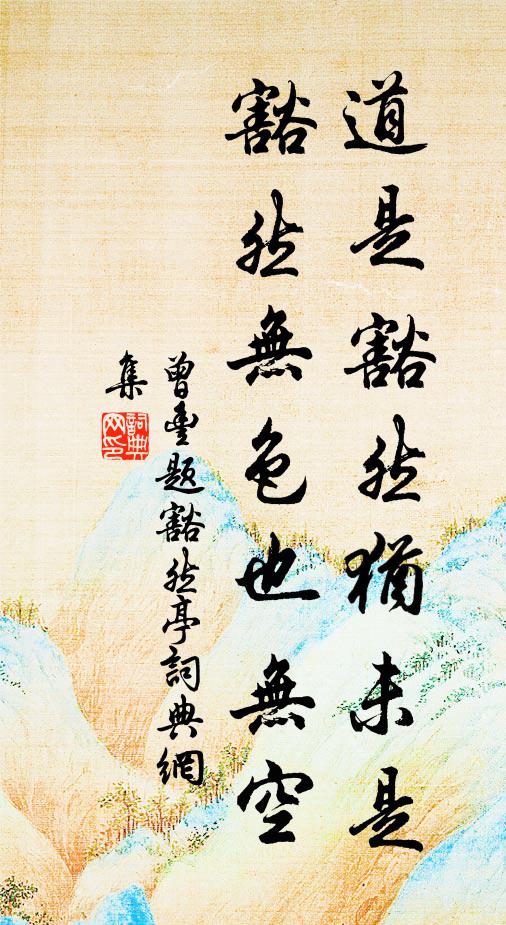 道是豁然猶未是
豁然無色也無空
曾豐題豁然亭詞典網
集
詞典
网印